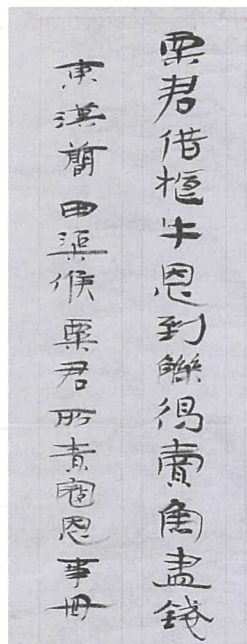 粟君借牛恩到觻得賣魚盡錢
東漢簡 甲渠候粟君所責寇恩事冊